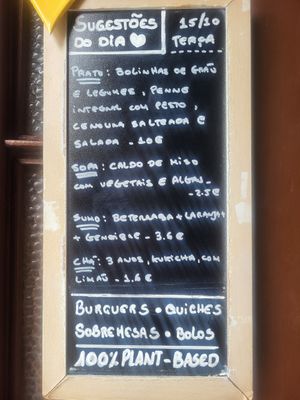 SUGESTÕES DO DIA ♥
15/10 TERÇA
PRATO: BOLINHAS DE GRÃO
E LEGUMES, PENNE
INTEGRAL COM PESTO,
CENOURA SALTEADA E
SALADA - 10€
SOPA: CALDO DE MISO
COM VEGETAIS E ALGAS -
- 2.5€
SUMO: BETERRABA + LARANJA +
+ GENGIBRE - 3.6€
CHÁ: 3 ANOS, KUKICHA, COM
LIMÃO - 1.6€
BURGUERS • QUICHES
SOBREMESAS • BOLOS
100% PLANT-BASED